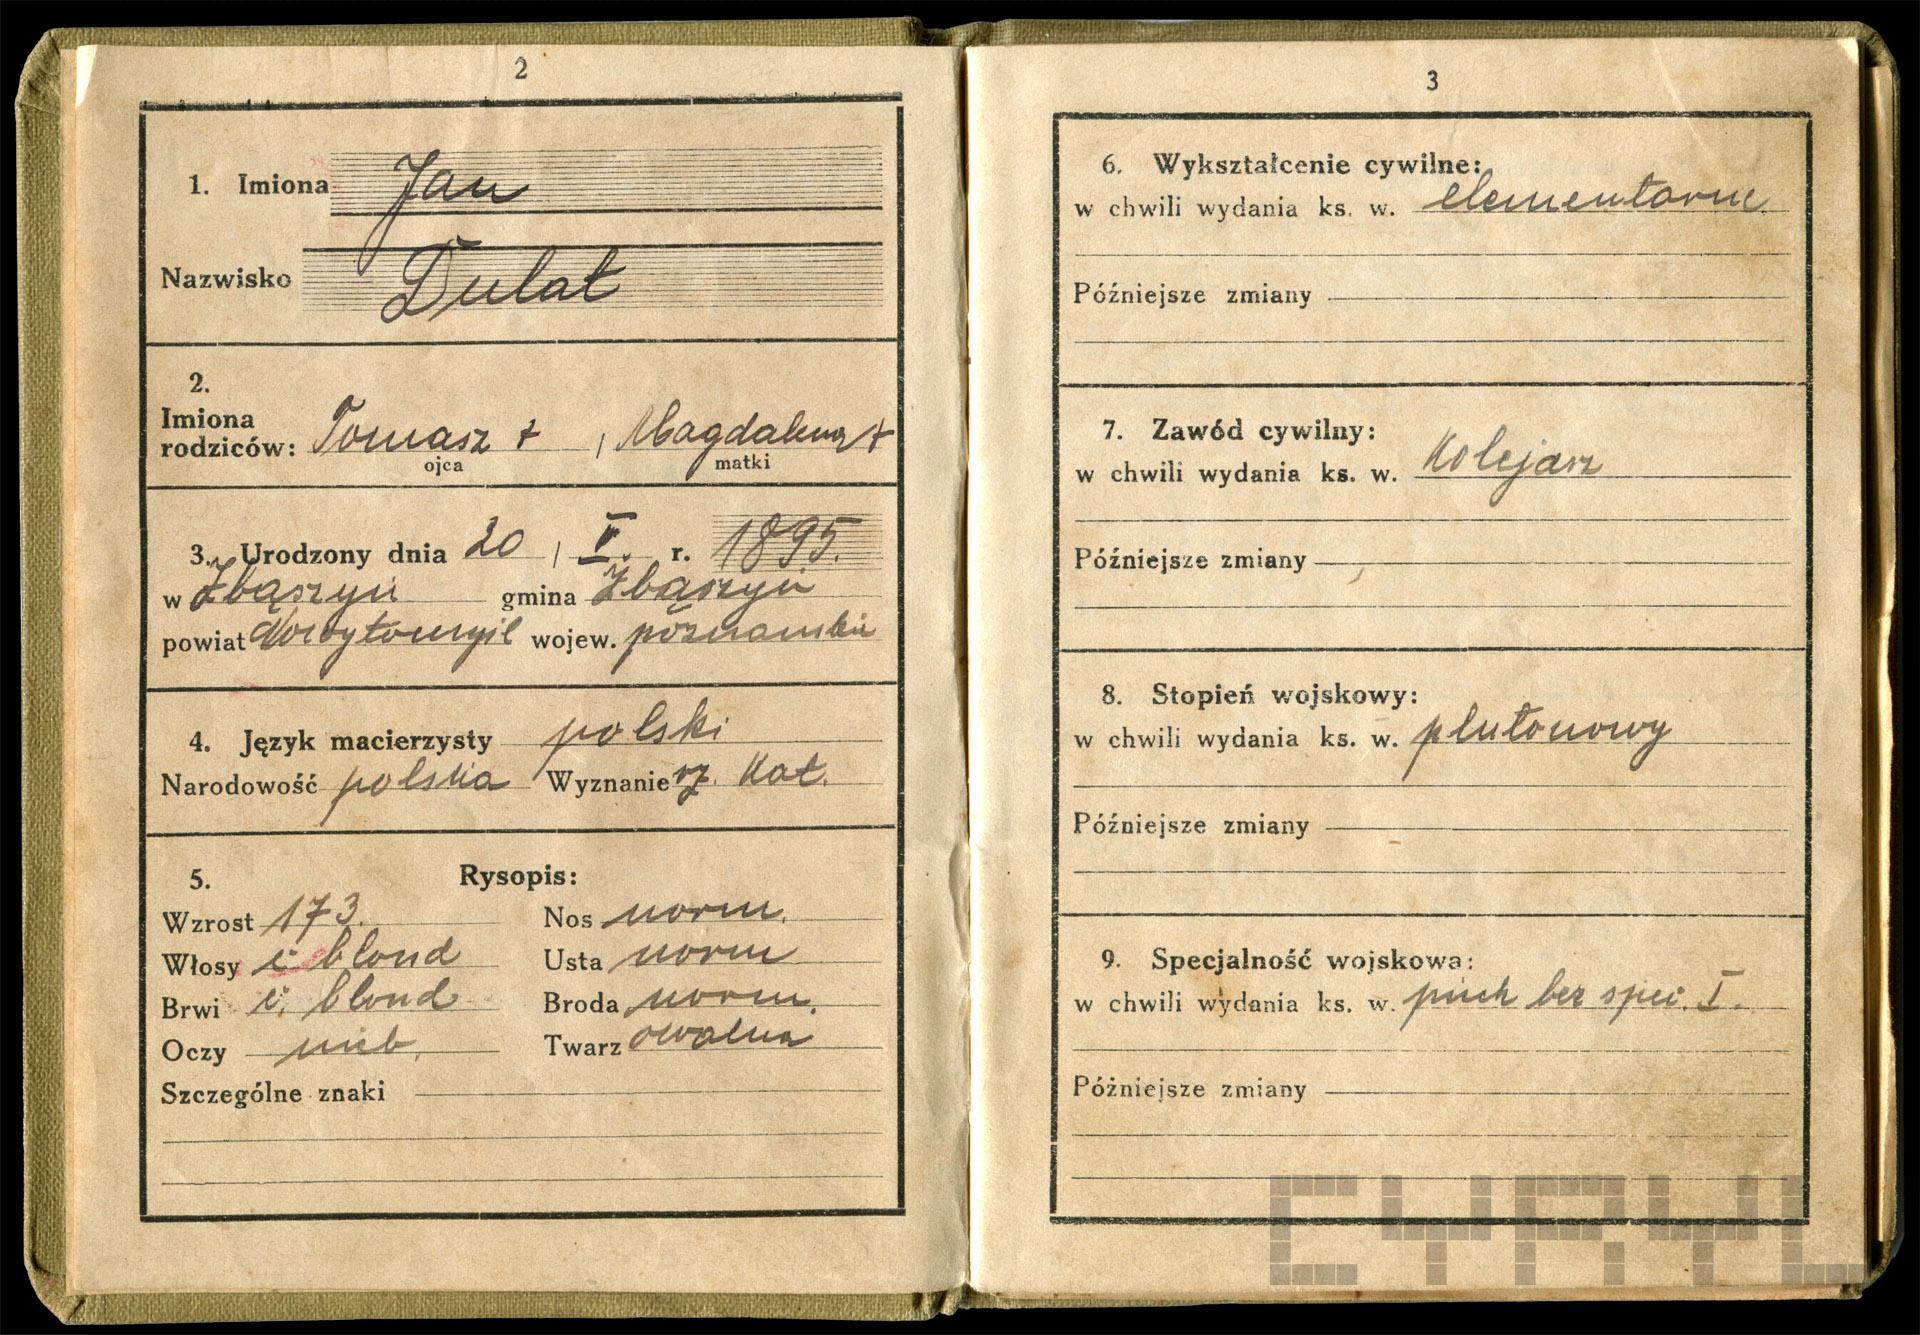 2
1. Imiona Jan
Nazwisko Dulat
2.
Imiona
rodziców: Tomasz + , Magdalena +
ojca matki
3. Urodzony dnia 20 , V. r. 1895.
w Zbąszyń gmina Zbąszyń
powiat Nowytomyśl wojew. poznańskie
4. Język macierzysty polski
Narodowość polska Wyznanie rz. kat.
5. Rysopis:
Wzrost 173. Nos norm.
Włosy c. blond Usta norm
Brwi c. blond Broda norm.
Oczy nieb. Twarz owalna
Szczególne znaki
3
6. Wykształcenie cywilne:
w chwili wydania ks. w. elementarne
Późniejsze zmiany
7. Zawód cywilny:
w chwili wydania ks. w. Kolejarz
Późniejsze zmiany
8. Stopień wojskowy:
w chwili wydania ks. w. plutonowy
Późniejsze zmiany
9. Specjalność wojskowa:
w chwili wydania ks. w. piech bez spec. I.
Późniejsze zmiany
CYRYL